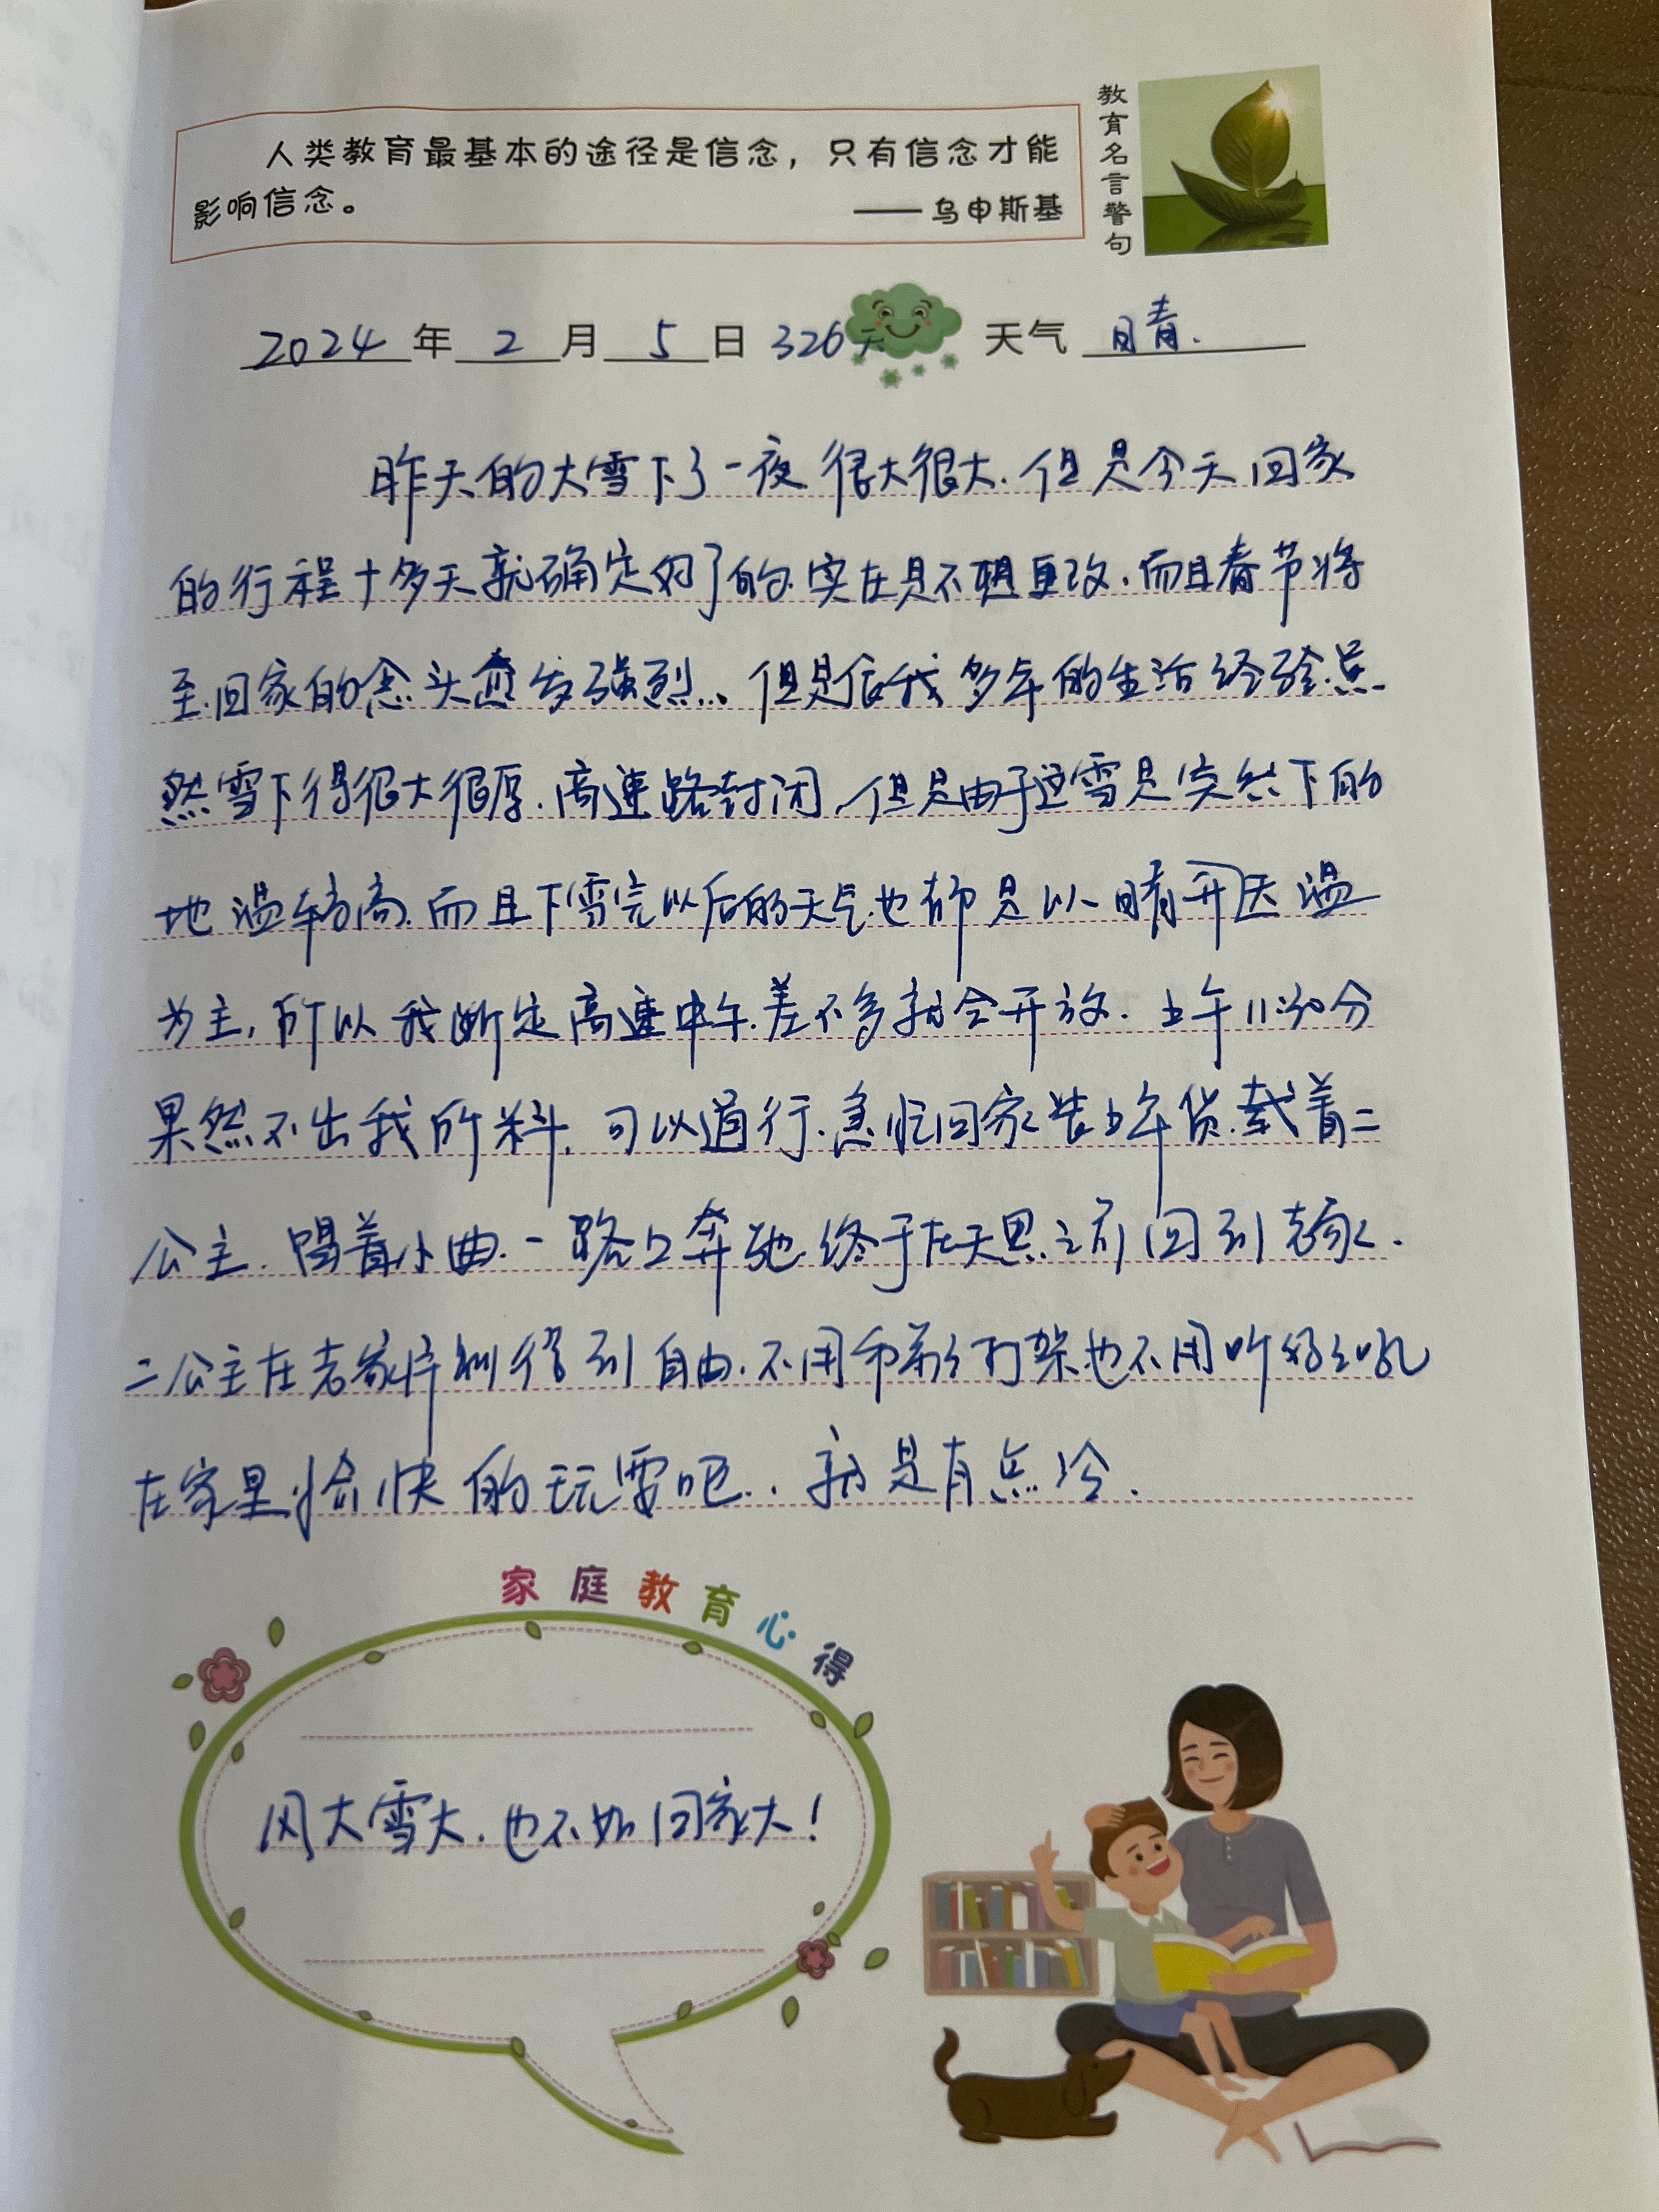 人类教育最基本的途径是信念，只有信念才能
影响信念。
—— 乌申斯基
教育名言警句
2024年 2 月 5 日 326天 天气 晴.
昨天的大雪下了一夜很大很大.但是今天回家
的行程十多天就确定好了的.实在是不想更改.而且春节将
至.回家的念头愈发强烈..、但是依我多年的生活经验.虽
然雪下得很大很厚.高速路封闭,但是由于这雪是突然下的
地温较高.而且下雪完以后的天气也都是以晴开
为主,所以我断定高速中午差不多就会开放.上午11:30分
果然不出我所料.可以通行.急忙回家装上年货.载着二
公主.唱着小曲.一路上奔驰.终于在天黑之前回到老家.
二公主在老家得到自由.不用打架也不用听妈妈吼
在家里愉快的玩耍吧..就是有点冷.
家庭教育心得
风大雪大.也不如回家大!